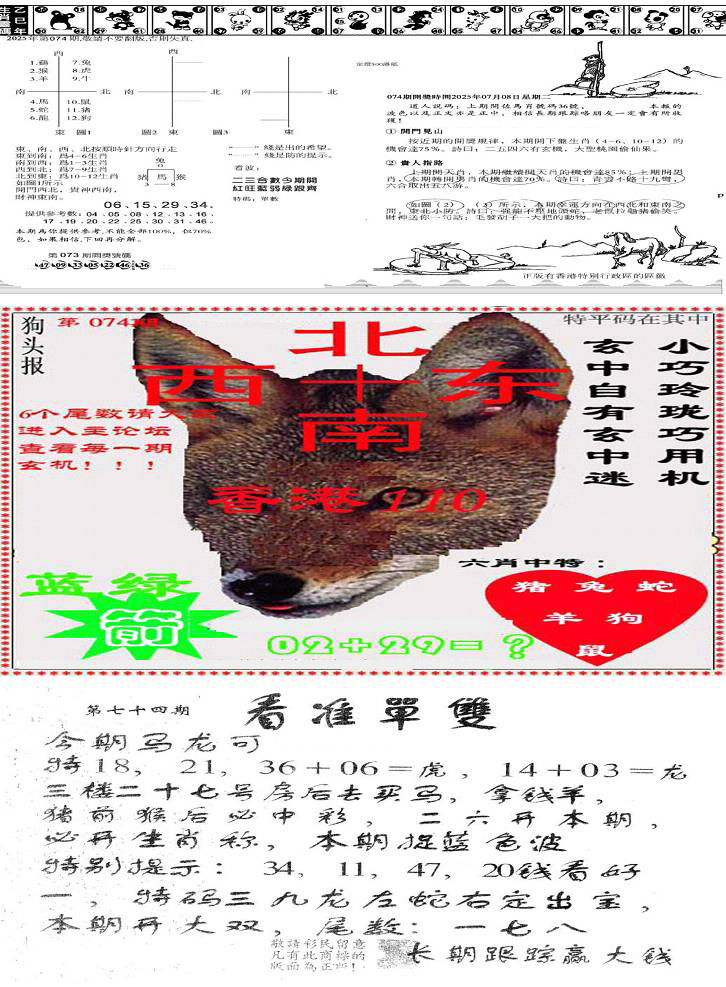 乙巳年
生肖靈碼
2025年第074期,敬請不要翻版,否則失真.
西
1.鷄 7.兔
2.猴 8.虎
3.羊 9.牛
南 北
4.馬 10.鼠
5.蛇 11.猪
6.龍 12.狗
東 圖1
西
南 北
圖2 東
南 北
圖3 東
東、南、西、北按順時針方向行走
東到南; 爲4-6生肖
南到西; 爲1-3生肖
西到北; 爲7-9生肖
北到東; 爲10-12生肖
如圖1所示
開門西北, 貴神西南,
財神東南.
兔
0
猪 馬 猴
3 8
"———" 綫是出的希望.
"-------" 綫是防的提示.
看波:
二三合數少期開
紅旺藍弱綠跟齊
特碼: 單數
06.15.29.34.
提供參考數: 04.05.08.12.13.16
17.19.20.22.25.30.31.46
本期爲你提供參考,不能全部100%, 但70%
色, 如果相信,下回再分解.
第073期開獎號碼
47 09 33 05 22 46 36
定價500港紙
074期開獎時間2025年07月08日星期二
道人說碼: 上期開佐馬肖號碼36號, 本報的
波色以及正文亦是正中, 相信長期跟踪咯朋友一定會有所收
獲!
① 開門見山
按近期的開獎規律, 本期開下盤生肖(4-6、10-12)的
機會達75%. 詩曰: 二五四六有玄機, 大聖桃園偷仙果.
② 貴人指路
上期開天肖, 本期繼續開天肖的機會達85%; 上期開男
肖, 本期轉開男肖的機會達70%. 詩曰: 青雲不路十九彎,
六合取出五八游.
如圖(2)、(3)所示, 本期幸運方向在西北和東南之
間, 東北小防. 詩曰: 强龍不壓地頭蛇, 老鼠拉龜猪偷笑.
財神送你一句話: 毛發胡子一大把的動物.
P
正版有香港特别行政區的區徽
狗头报
第 074期
特平码在其中
北
西十东
南
6个尾数请大家
进入主论坛
查看每一期
玄机！！！
香港110
小巧玲珑巧用机
玄中自有玄中迷
六肖中特：
猪 兔 蛇
羊 狗
鼠
蓝绿
02+29=?
第七十四期
看准單雙
今期马龙可
特18, 21, 36+06=虎, 14+03=龙
三楼二十七号房后去买马, 拿钱羊,
猪前猴后必中彩, 二六开本期,
必开生肖称, 本期捉蓝色波
特别提示: 34, 11, 47, 20钱看好
一, 特码三九龙左蛇右定出宝,
本期开大双, 尾数: 一七八
敬請彩民留意
凡有此商標的
版面為正版!
长期跟踪赢大钱